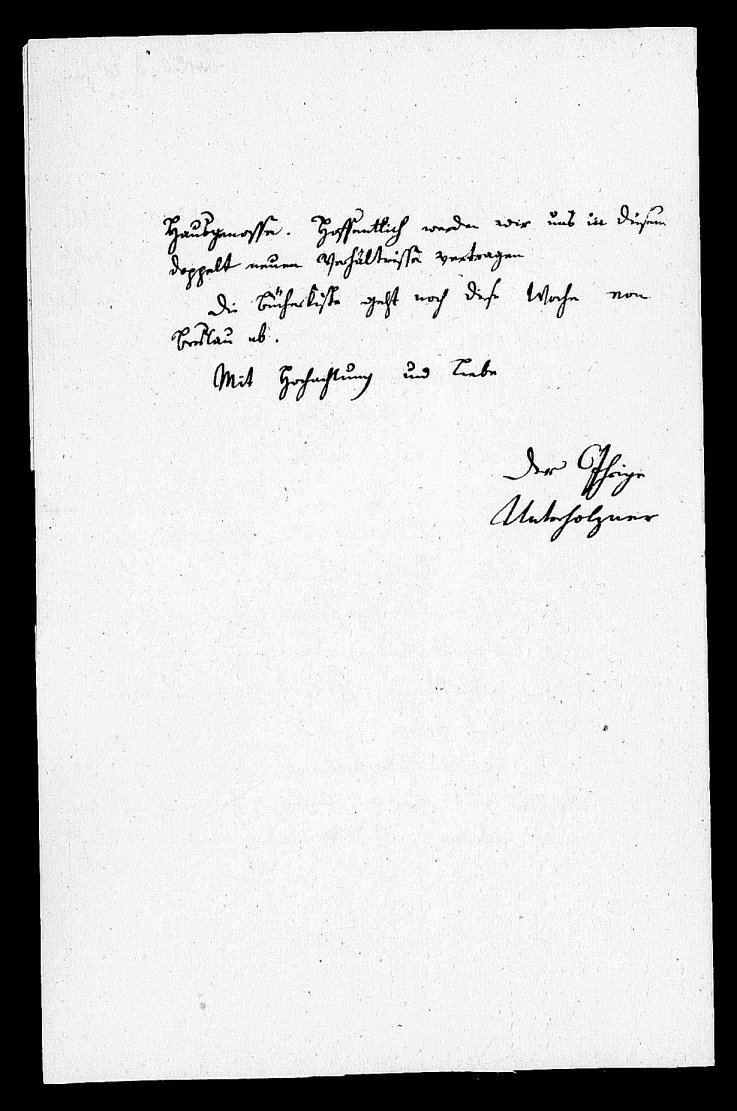 Hausgenosse. Hoffentlich werden wir uns in diesem
doppelt neuen Verhältnisse vertragen
Die Bücherkiste geht noch diese Woche von
Breslau ab.
Mit Hochachtung und Liebe
Der Ihrige
Unterholzner